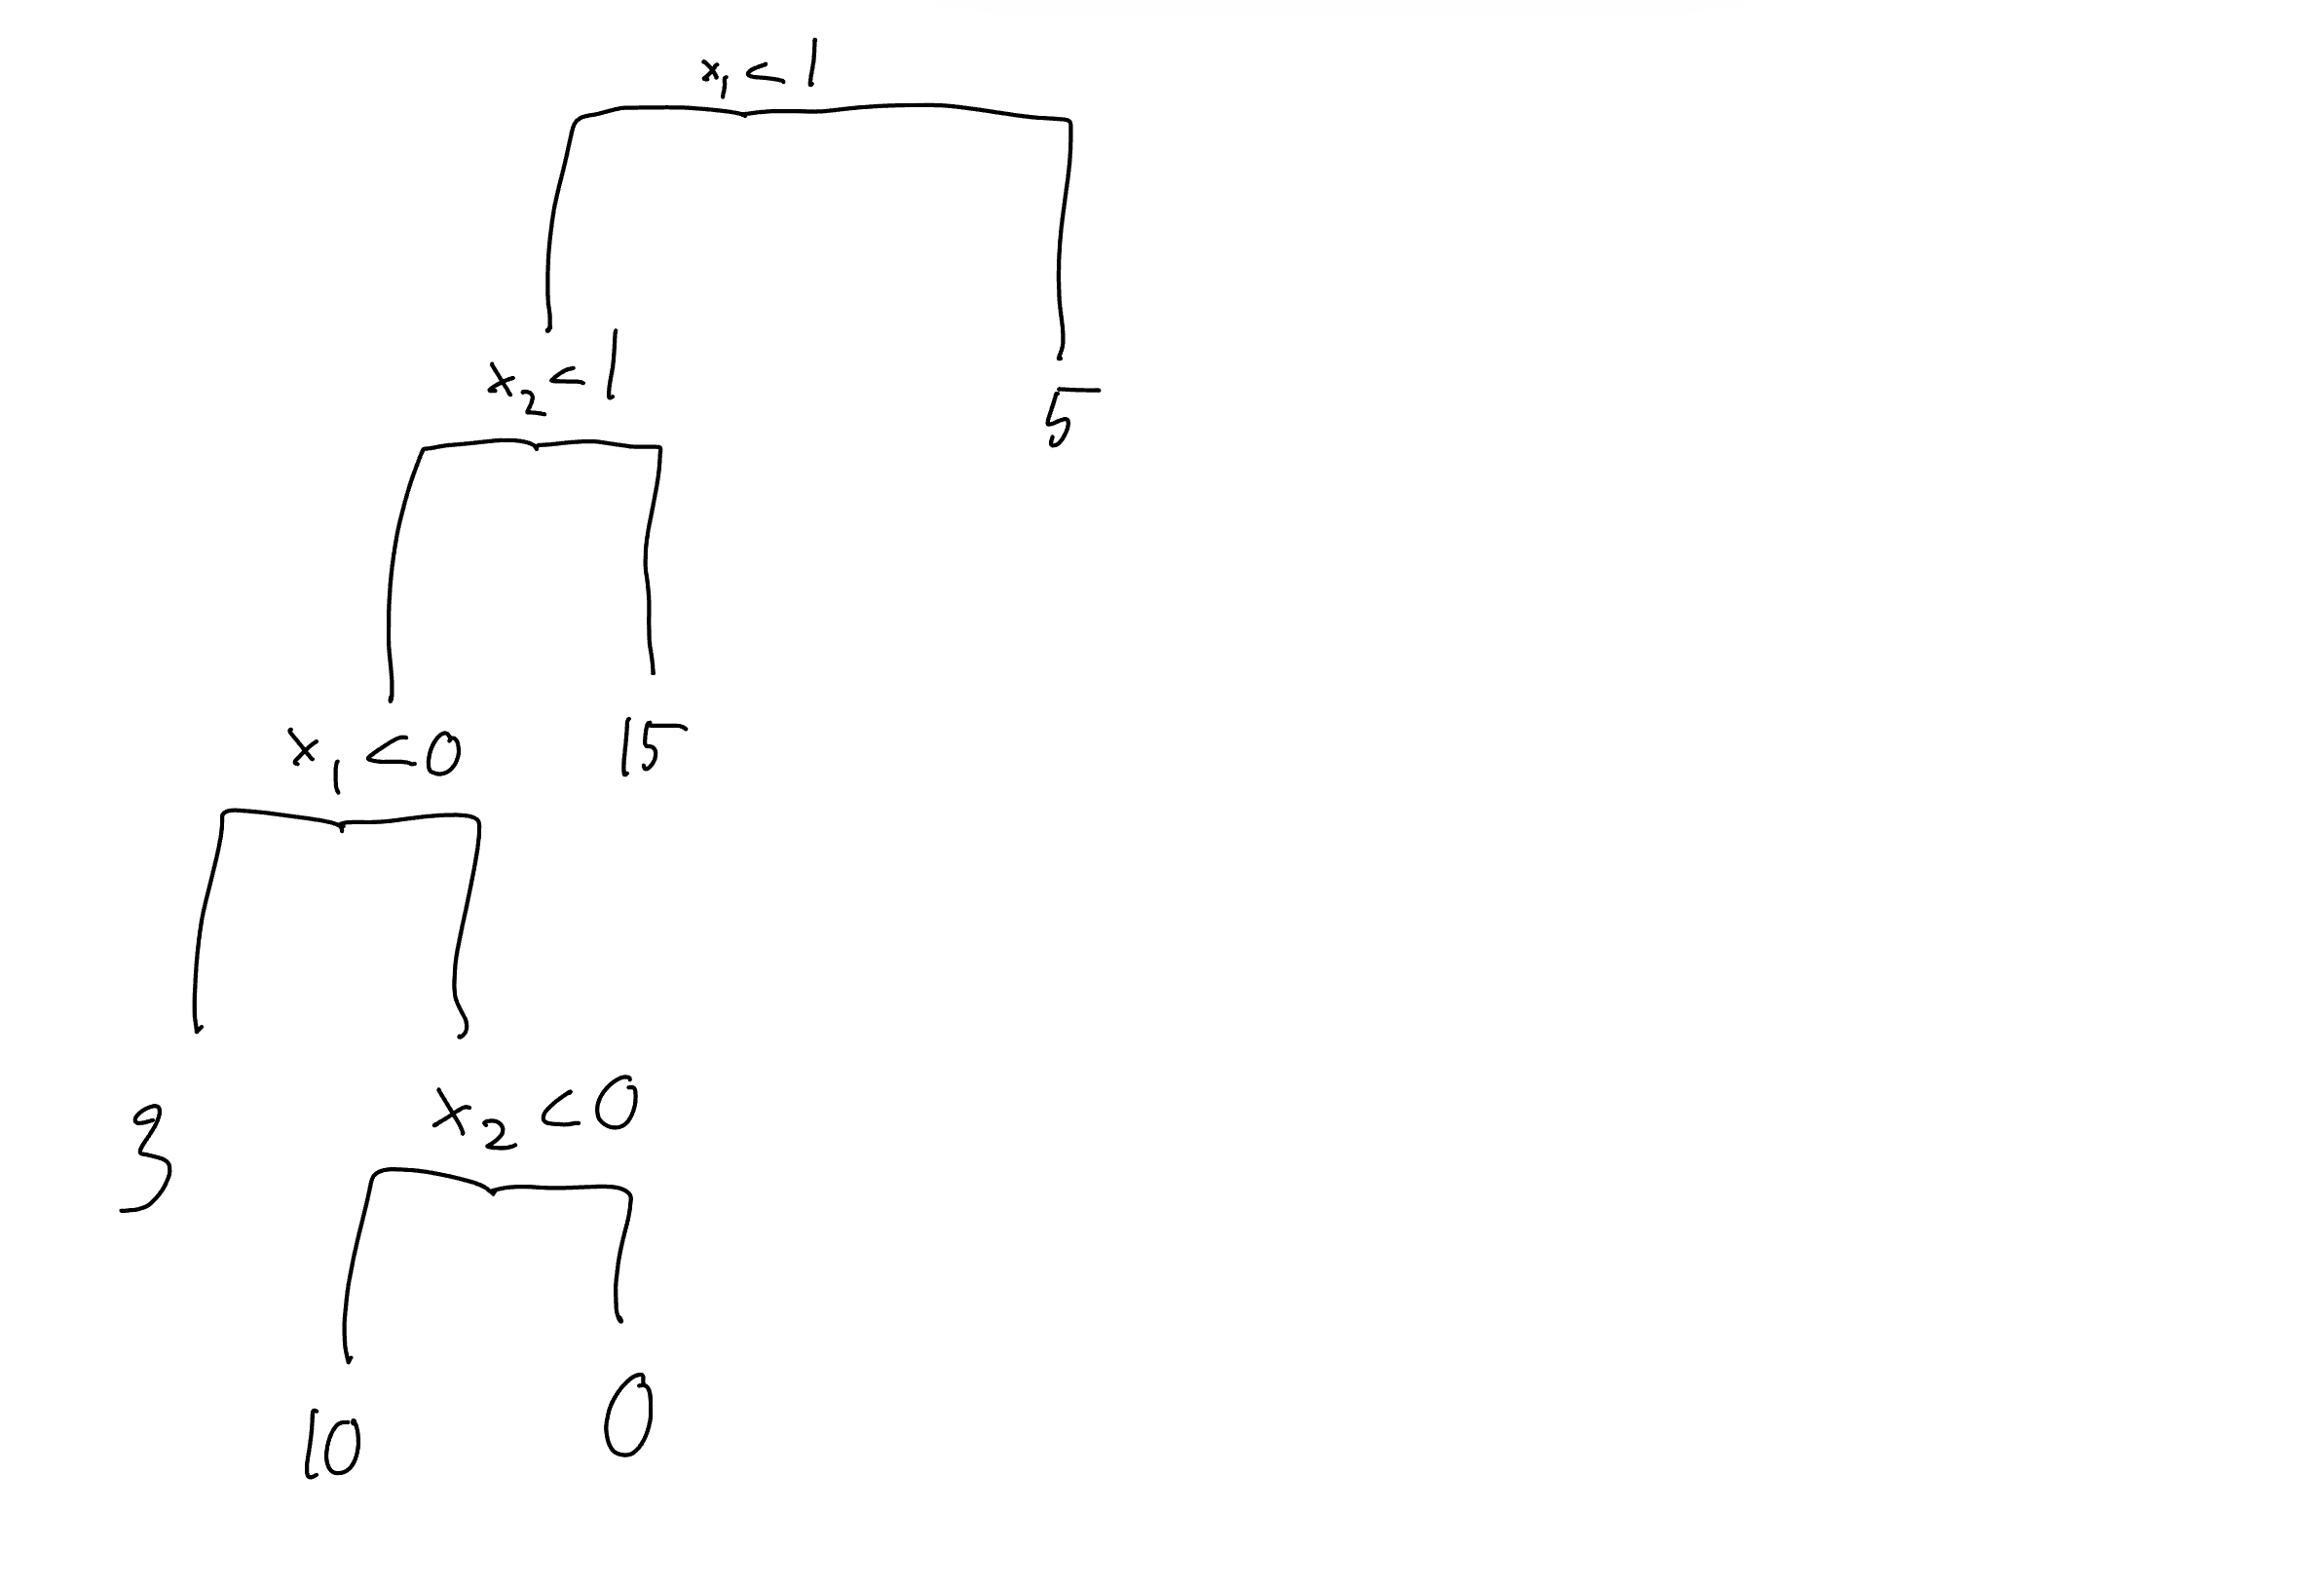 x₁ < 1
x₂ < 1
5
x₁ < 0
15
3
x₂ < 0
10
0